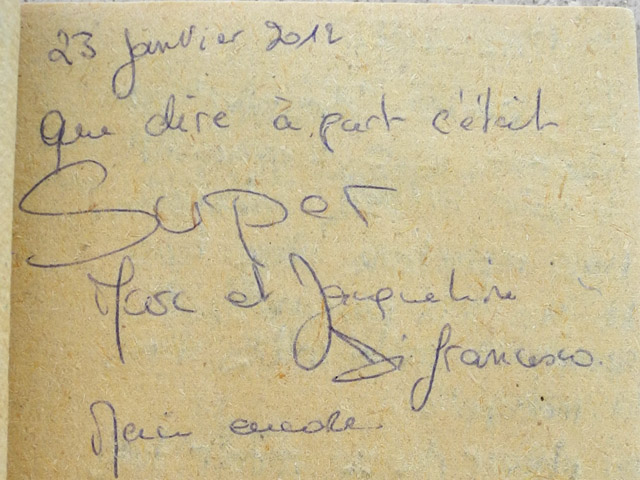 23 janvier 2012
Que dire à part c'était
Super
Marc et Jacqueline
Di francesco.
Merci encore